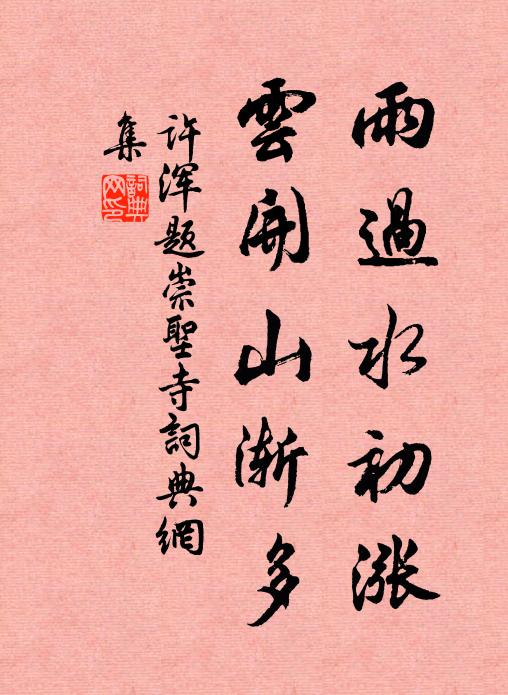 雨過水初漲
雲開山漸多
許渾題崇聖寺詞典網
集
詞典
网印